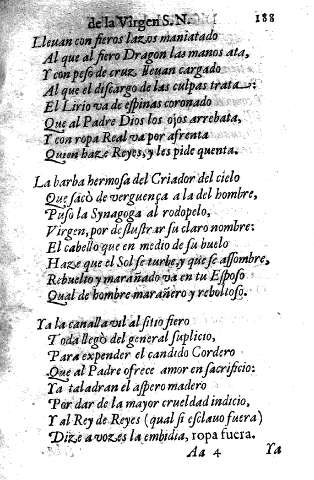 de la Virgen S. N. 188
Lleuan con fieros lazos maniatado
Al que al fiero Dragon las manos ata,
Y con peso de cruz lleuan cargado
Al que el discargo de las culpas trata:
El Lirio va de espinas coronado
Que al Padre Dios los ojos arrebata,
Y con ropa Real va por afrenta
Quien haze Reyes, y les pide quenta.
La barba hermosa del Criador del cielo
Que sacò de verguença a la del hombre,
Puso la Synagoga al rodopelo,
Virgen, por deslustrar su claro nombre:
El cabello que en medio de su buelo
Haze que el Sol se turbe, y que se assombre,
Rebuelto y marañado va en tu Esposo
Qual de hombre marañero y reboltoso.
Ya la canalla vil al sitio fiero
Toda llegò del general suplicio,
Para expender el candido Cordero
Que al Padre ofrece amor en sacrificio:
Ya taladran el aspero madero
Por dar de la mayor crueldad indicio,
Y al Rey de Reyes (qual si esclauo fuera)
Dize a vozes la embidia, ropa fuera.
Aa 4 Ya